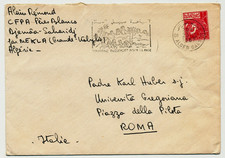 Alain Rémond
CFPA Père Blanc
Djemâa-Saharidj
par MEKLA (Grande Kabylie)
Algérie
Padre Karl Huber s.j.
Università Gregoriana
Piazza della Pilotta
ROMA
Italie